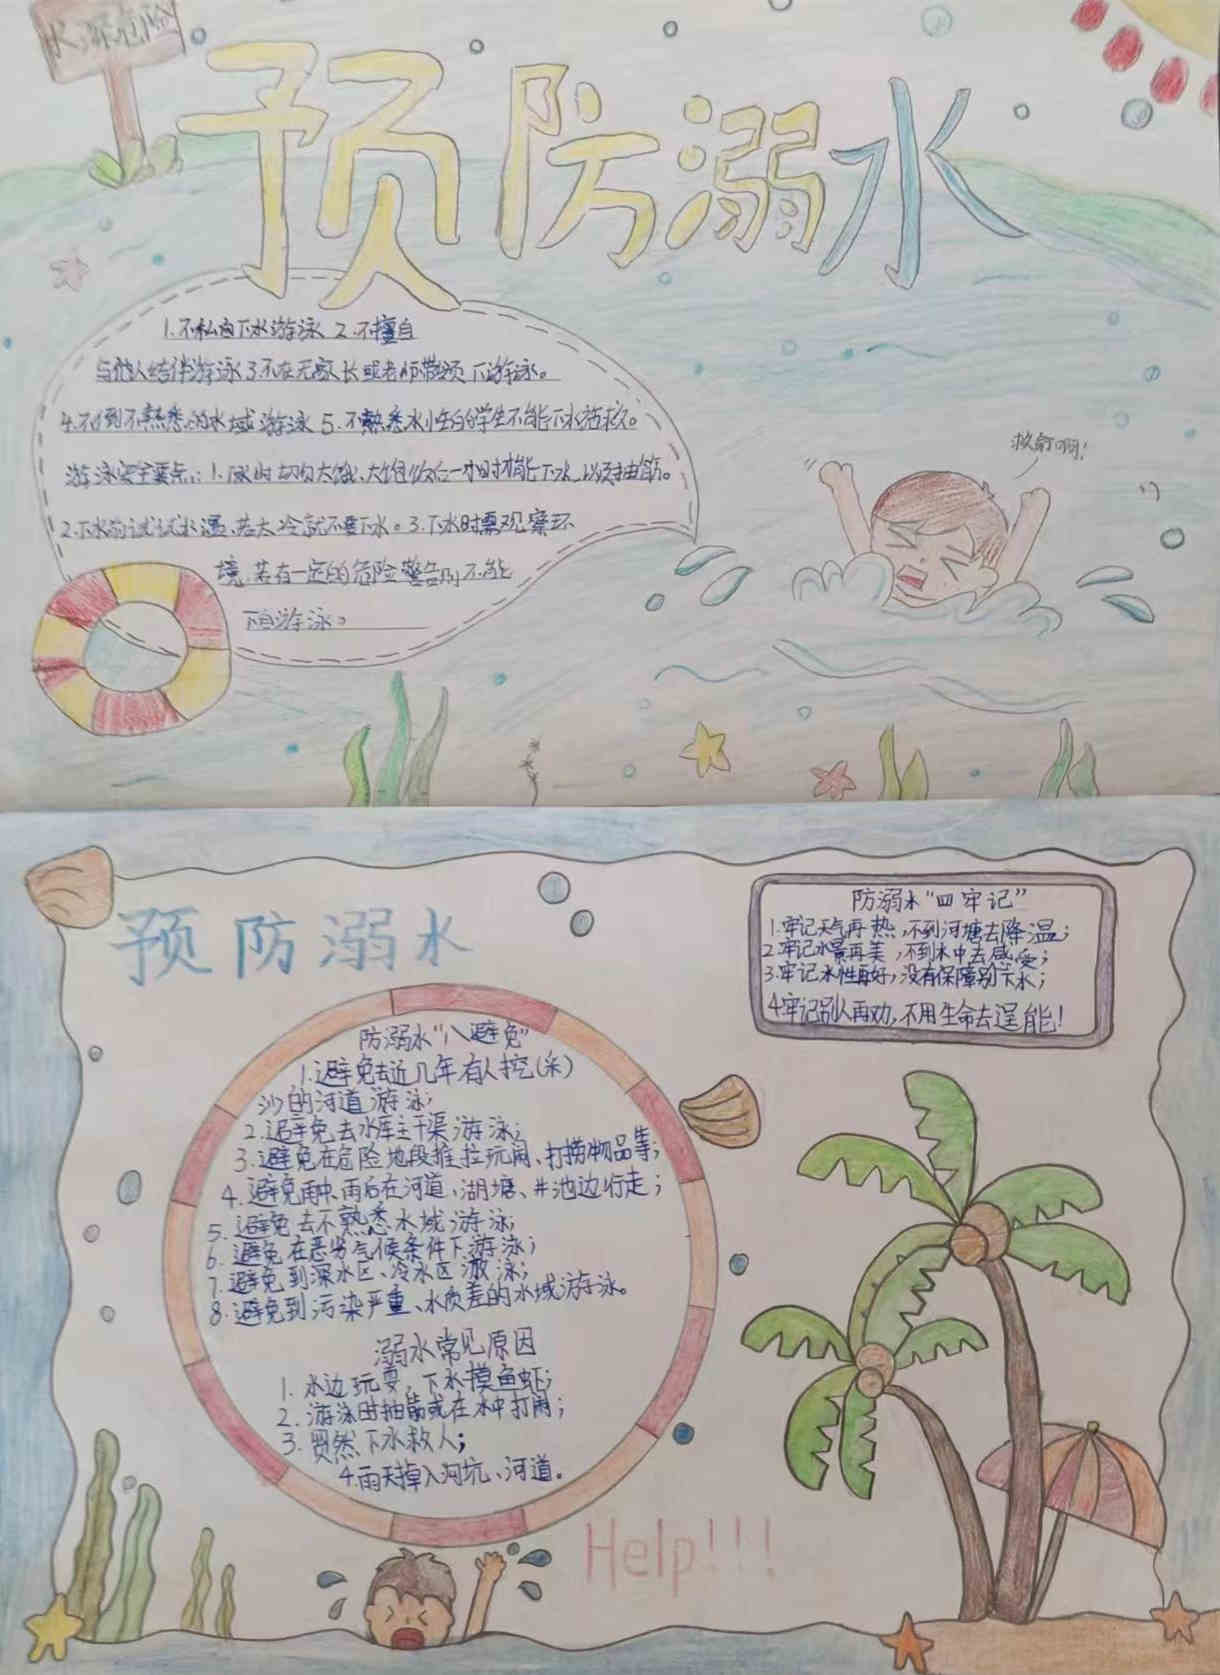 水深危险
预防溺水
1.不私自下水游泳 2.不擅自
与他人结伴游泳3.不在无家长或老师带领下游泳。
4.不到不熟悉的水域游泳 5.不熟悉水性的学生不能下水施救。
游泳安全要点:1.下水时切勿太饿、太饱饭后一小时才能下水,以免抽筋。
2.下水前试试水温,若太冷就不要下水。3.下水时要观察环
境,若有一定的危险警告则不能
下自游泳。
救命啊!
预防溺水
防溺水“四牢记”
1.牢记天气再热,不到河塘去降温;
2.牢记水景再美,不到水中去感受;
3.牢记水性再好,没有保障别下水;
4.牢记别人再劝,不用生命去逞能!
防溺水“八避免”
1.避免去近几年有人挖(采)
沙的河道游泳;
2.避免去水库主干渠游泳;
3.避免在危险地段推拉玩闹、打捞物品等;
4.避免雨中、雨后在河道、湖塘、井池边行走;
5.避免去不熟悉水域游泳;
6.避免在恶劣气候条件下游泳;
7.避免到深水区、冷水区游泳;
8.避免到污染严重、水质差的水域游泳。
溺水常见原因
1.水边玩耍,下水摸鱼虾;
2.游泳时抽筋或在水中打闹;
3.贸然下水救人;
4.雨天掉入沟坑、河道。
Help!!!